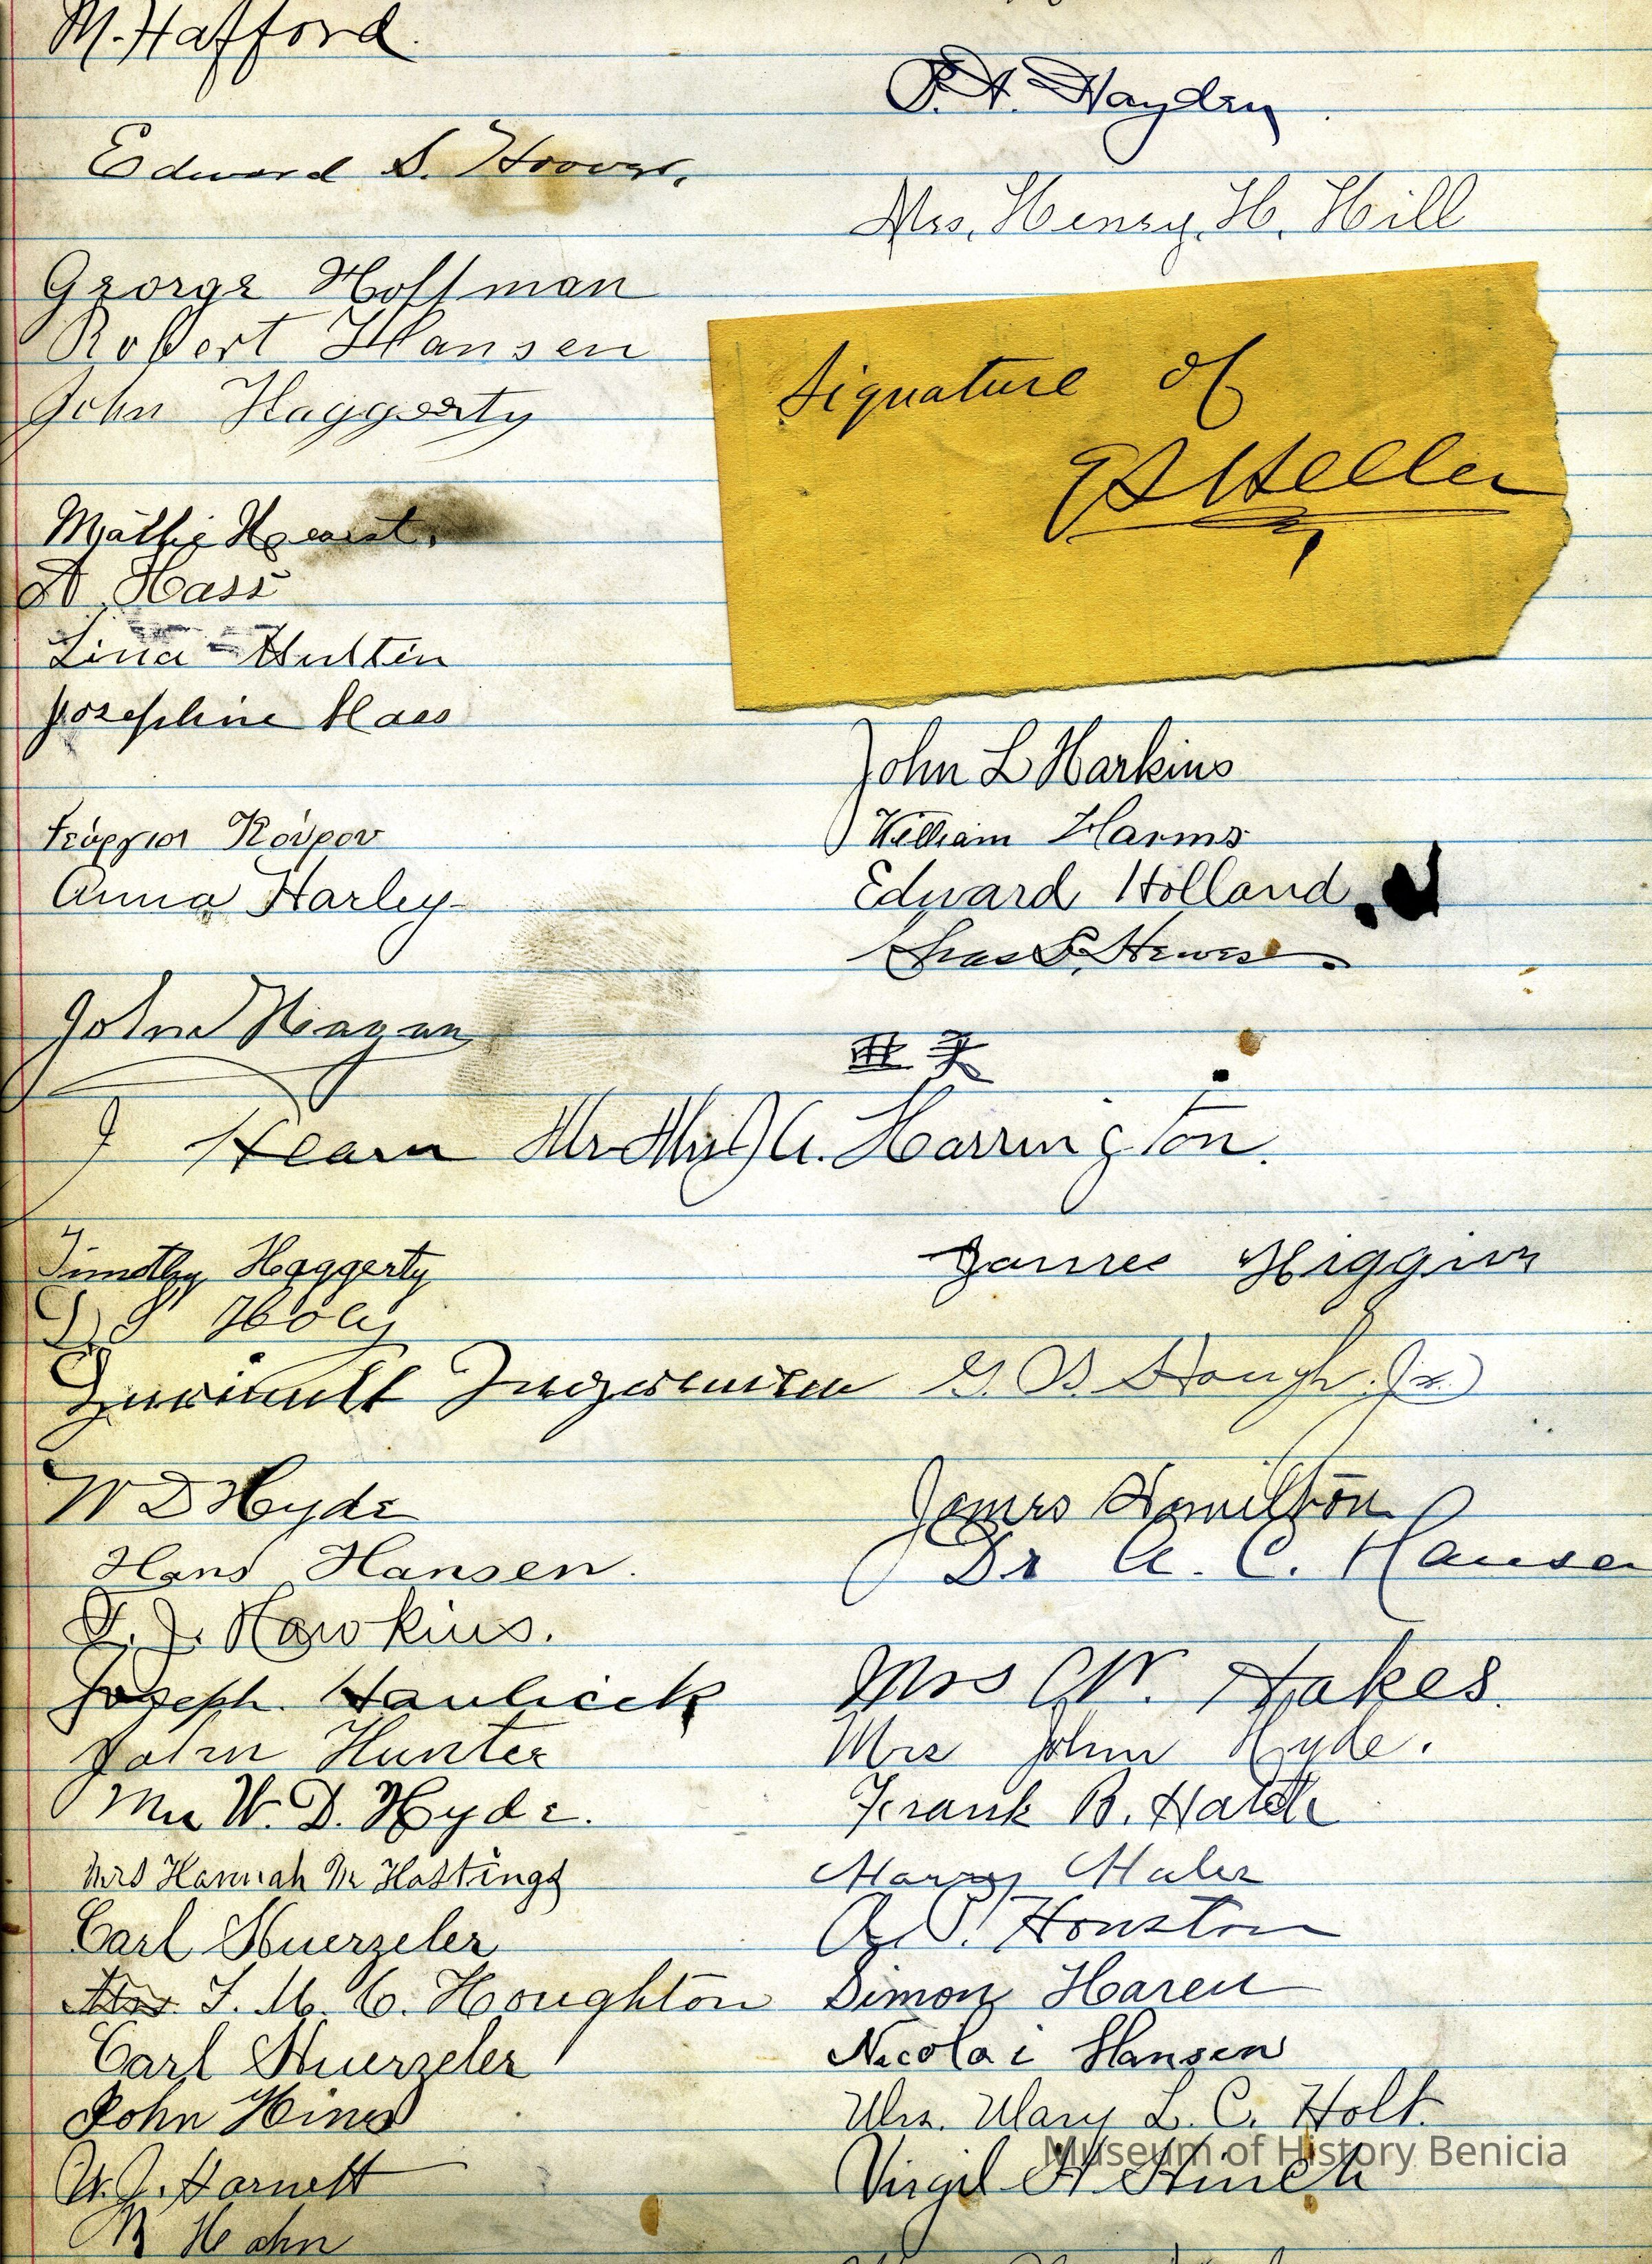 M. Hafford.
Edward S. Hoover.
George Hoffman
Robert Hansen
John Haggerty
Hearst.
A Hass
Lina Hulten
Josephine Haas
Γεώργιος Κούρου
Anna Harley
John Hagan
J Hearn
Timothy Haggerty
Holy
W D Hyde
Hans Hansen.
T. J. Hawkins.
Joseph Havlicek
John Hunter
W. D. Hyde.
Mrs Hannah M Hastings
Carl Huerzeler
Mrs. J. M. C. Houghton
Carl Huerzeler
John Hines
W. J. Harnett
R Hahn
P. H. Hayden
Mrs. Henry H. Hill
Signature of
E S Heller
John L Harkins
William Harms
Edward Holland.
Chas S. Hewes.
Mr & Mrs J A. Harrington.
James Higgins
G. B Hough (Jr.)
James Hamilton
Dr A. C. Hansen
Mrs C W. Hakes.
Mrs John Hyde.
Frank B. Hatch
Harry Hales
A. P. Houston
Simon Haren
Nicolai Hansen
Mrs. Mary L. C. Holt.
Virgil H Hinch
Museum of History Benicia